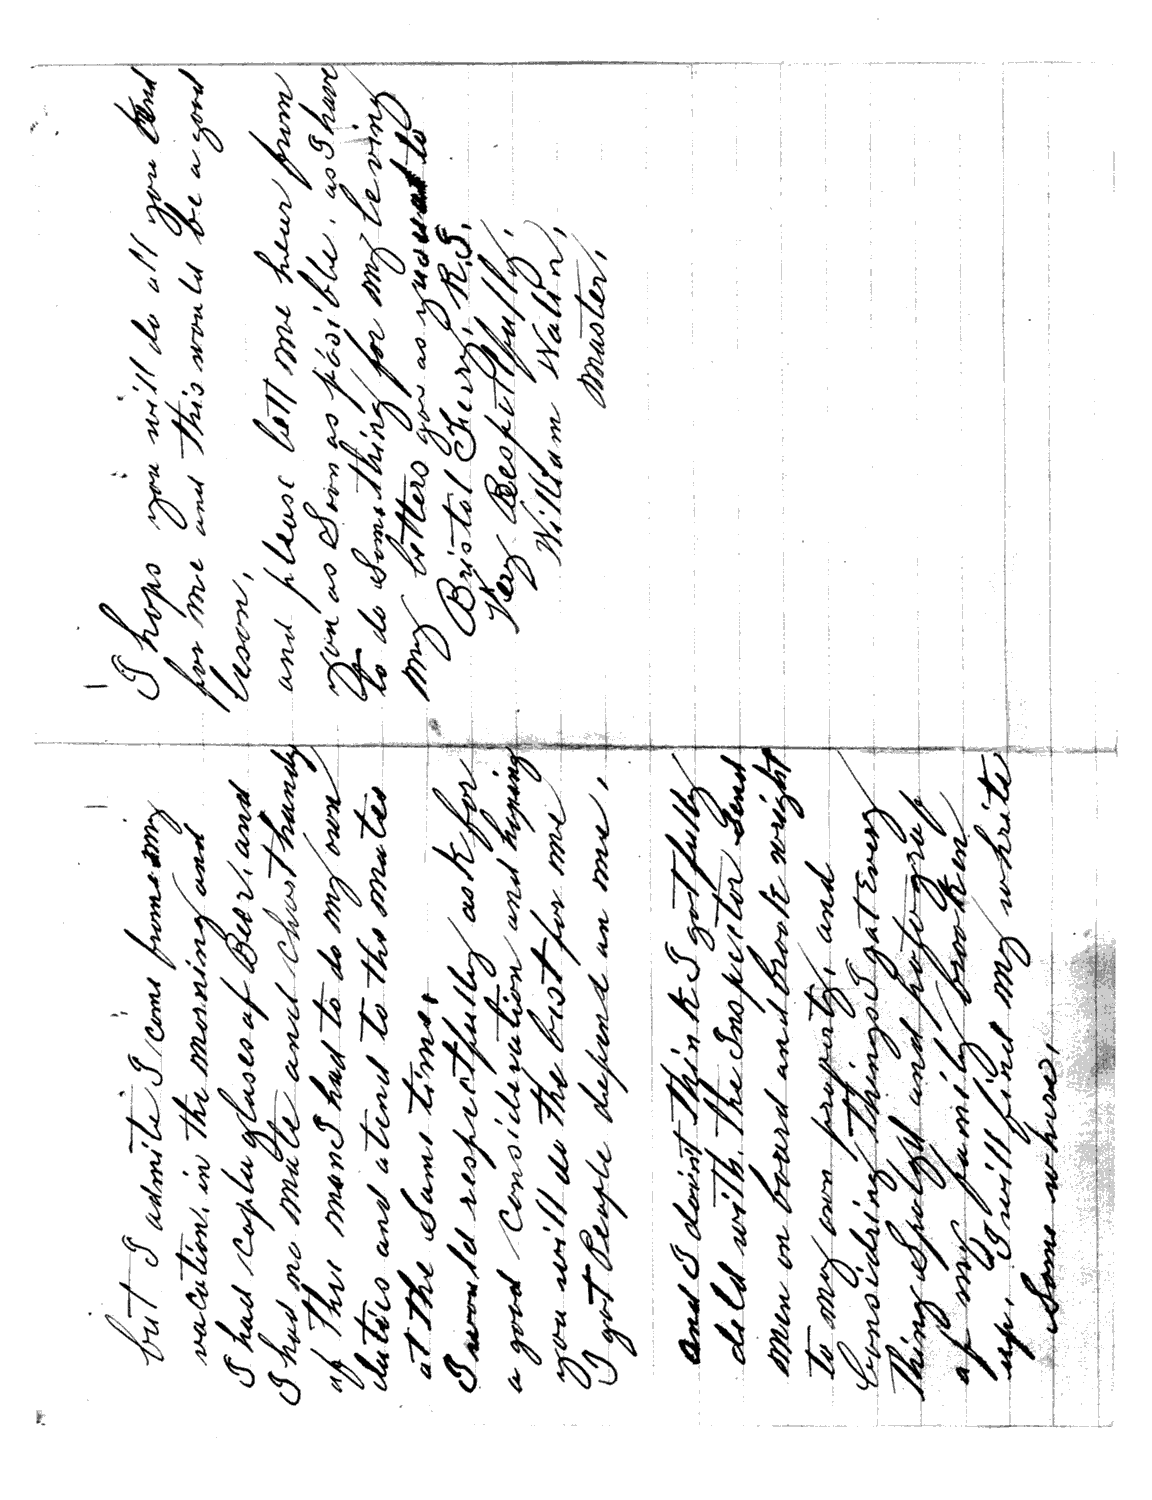 but I admite I come frome my
vacation, in the morning and
I had cuple glases of Beer, and
I had no mate and chust handy
of the men I had to do my own
duties and atend to the mates
at the Same time.
I would respectfully ask for
a good consideration and hoping
you will do the best for me
I got People depend on me.
and I don't think I got fully
deld with, the Inspector Send
men on board and brook wright
to my own property, and
Considring things I got Every
thing Spulyd and photograp
of my family brooken
up. I will find my white
Some where.
I hops you will do all you kend
for me and this would be a good
leson,
and please lett me hear from
you as Soon as posible, as I have
to do Something for my leving
my letters goes as
Bristol Cherry, R.I.
Very Respettfully,
William Walin,
Master,